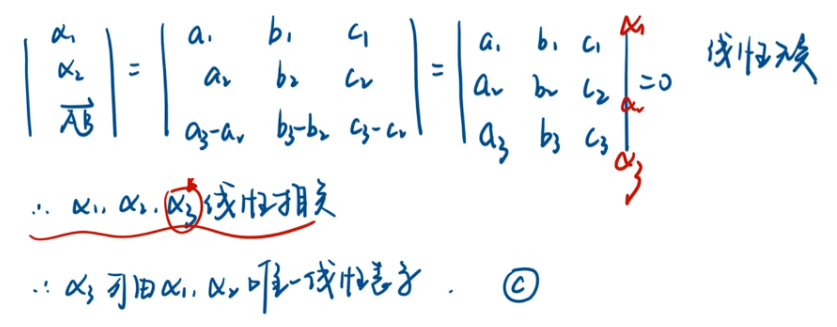 | α₁ ; α₂ ; \overrightarrow{AB} | = | a₁ b₁ c₁ ; a₂ b₂ c₂ ; a₃-a₂ b₃-b₂ c₃-c₂ | = | a₁ b₁ c₁ ; a₂ b₂ c₂ ; a₃ b₃ c₃ | α₁ α₂ α₃ =0 线性无关
∴ α₁, α₂, α₃ 线性相关
∴ α₃ 可由 α₁, α₂ 唯一线性表示. Ⓒ